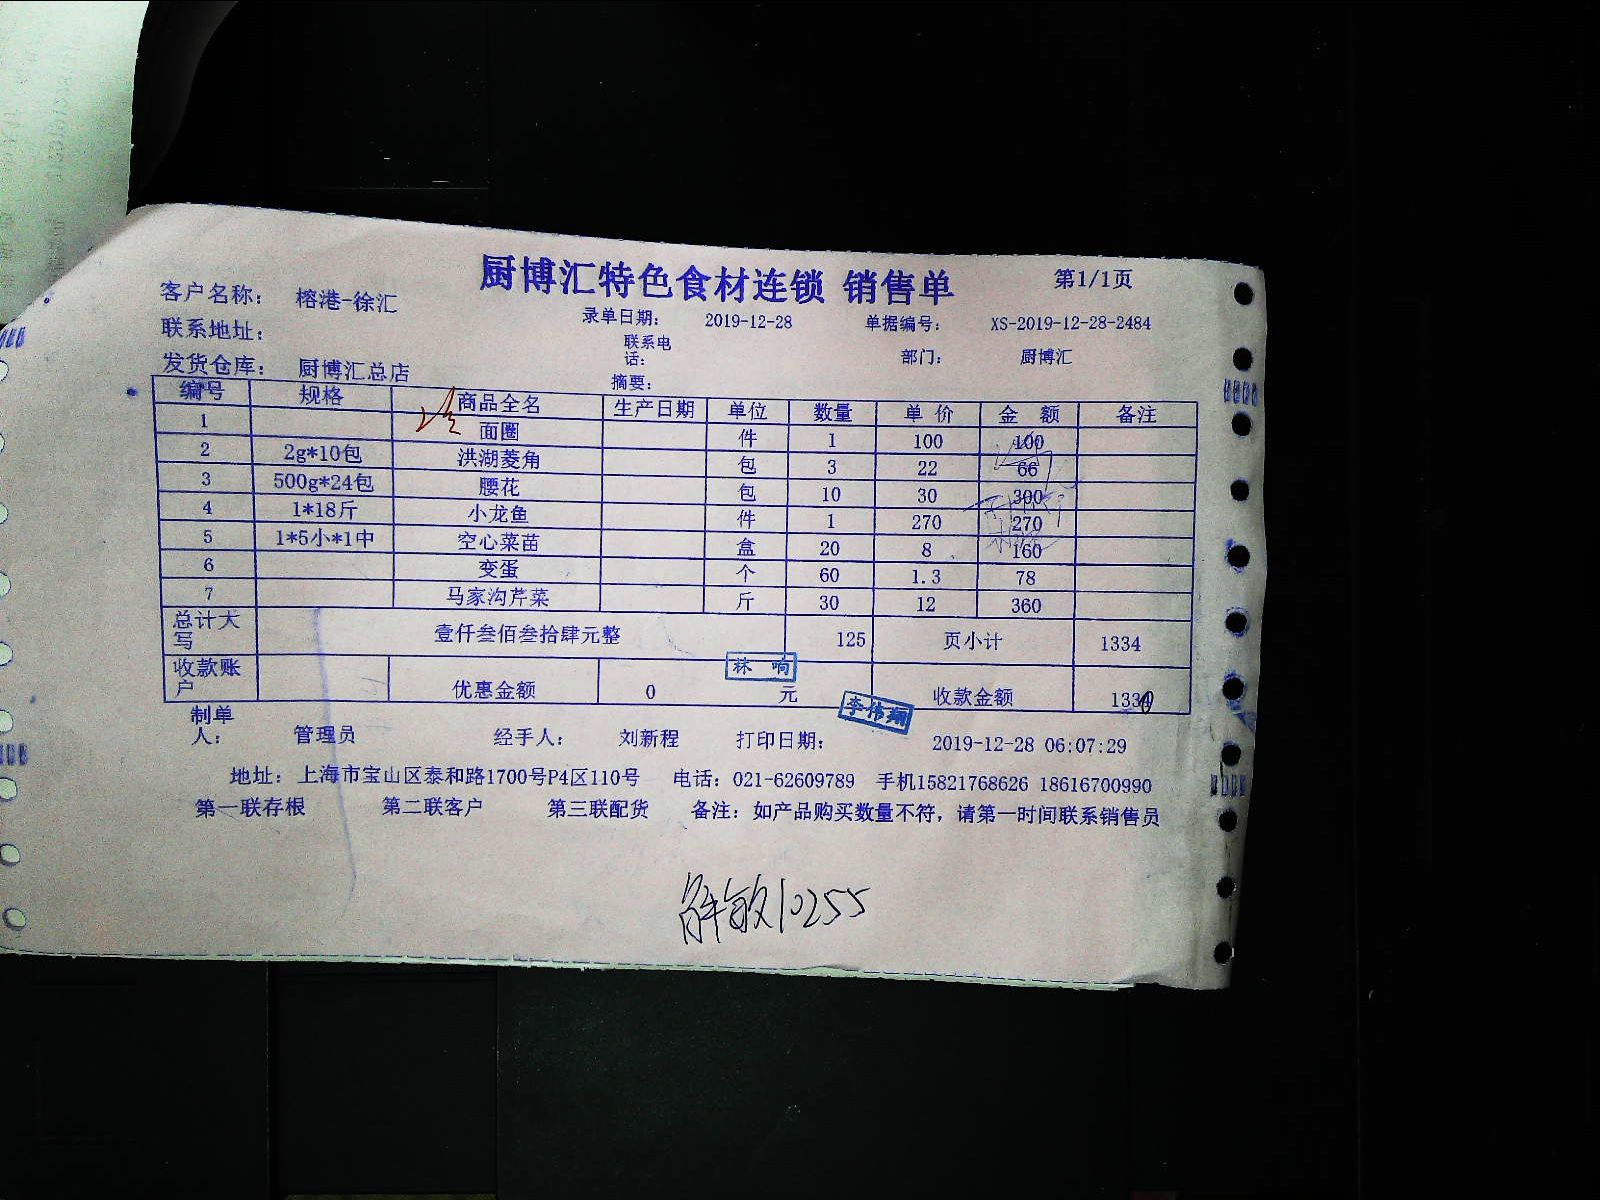 厨博汇特色食材连锁 销售单 第1/1页
客户名称： 榕港-徐汇
录单日期： 2019-12-28 单据编号： XS-2019-12-28-2484
联系地址： 联系电话： 部门： 厨博汇
发货仓库： 厨博汇总店 摘要：
编号 规格 商品全名 生产日期 单位 数量 单价 金额 备注
1 面圈 件 1 100 100
2 2g*10包 洪湖菱角 包 3 22 66
3 500g*24包 腰花 包 10 30 300
4 1*18斤 小龙鱼 件 1 270 270
5 1*5小*1中 空心菜苗 盒 20 8 160
6 变蛋 个 60 1.3 78
7 马家沟芹菜 斤 30 12 360
总计大写 壹仟叁佰叁拾肆元整 125 页小计 1334
林响
收款账户 优惠金额 0 元 收款金额 1330
李伟翔
制单人： 管理员 经手人： 刘新程 打印日期： 2019-12-28 06:07:29
地址：上海市宝山区泰和路1700号P4区110号 电话：021-62609789 手机15821768626 18616700990
第一联存根 第二联客户 第三联配货 备注：如产品购买数量不符，请第一时间联系销售员
解敏10255